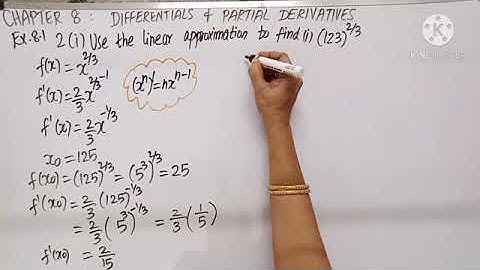 CHAPTER 8: DIFFERENTIALS & PARTIAL DERIVATIVES
Ex.8.1 2(i) Use the linear approximation to find (i) (123)^2/3
f(x) = x^2/3
f'(x) = 2/3 x^2/3-1
(x^n)' = nx^n-1
f'(x) = 2/3 x^-1/3
x₀ = 125
f(x₀) = (125)^2/3 = (5^3)^2/3 = 25
f'(x₀) = 2/3 (125)^-1/3
= 2/3 (5^3)^-1/3 = 2/3 (1/5)
f'(x₀) = 2/15